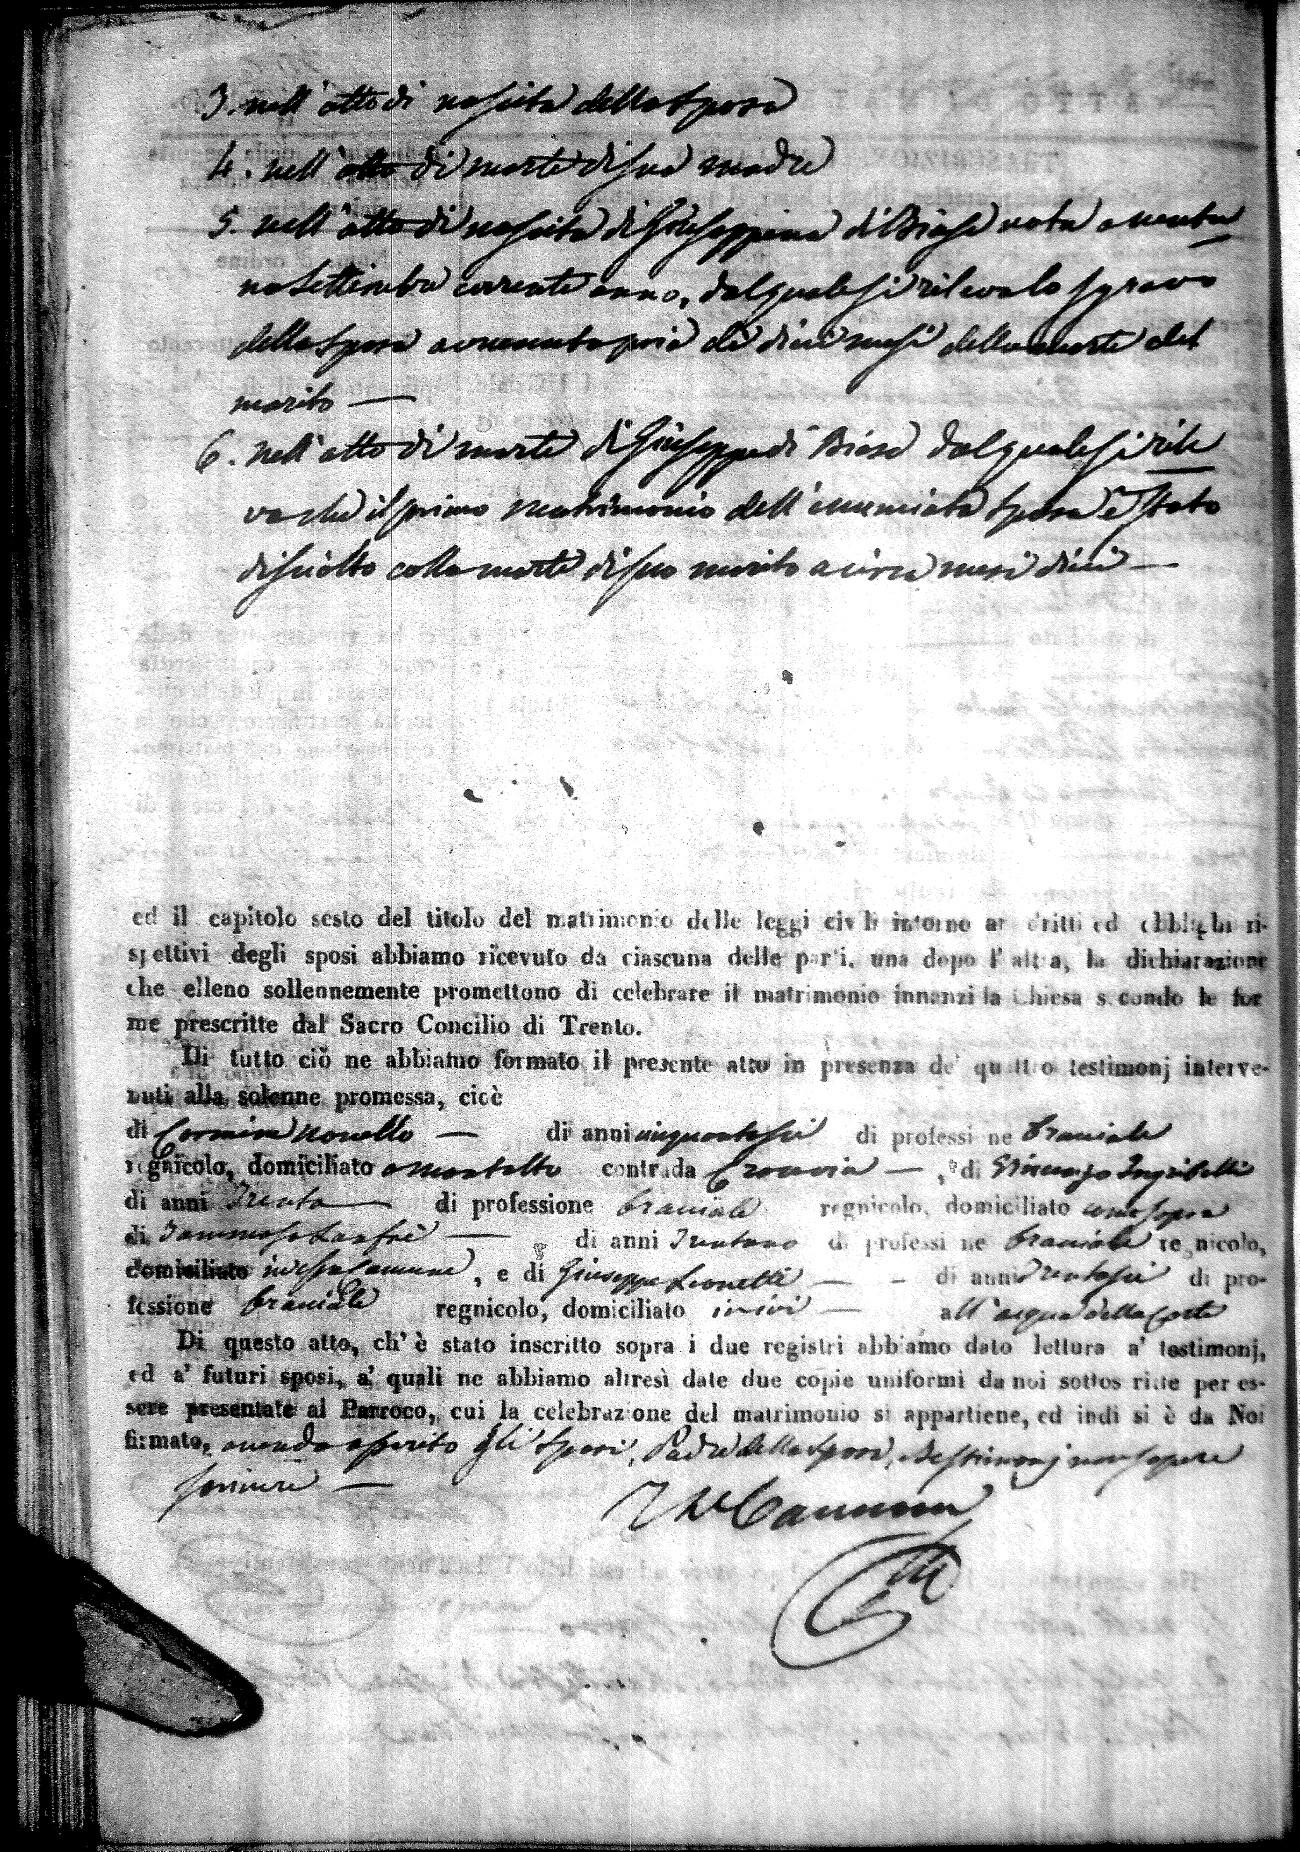 3. nell'atto di nascita della sposa
4. nell'atto di morte di sua madre
5. nell'atto di nascita di Giuseppina di Biase nata a ventu
no Settembre corrente anno, dal quale si rileva lo sgravo
della sposa avvenuto pria di dieci mesi della morte del
marito —
6. nell'atto di morte di Giuseppe di Biase dal quale si rile
va che il primo matrimonio dell'enunciata sposa è stato
disciolto colla morte di suo marito a circa mesi dieci —
ed il capitolo sesto del titolo del matrimonio delle leggi civili intorno ai dritti ed obblighi ri-
spettivi degli sposi abbiamo ricevuto da ciascuna delle parti, una dopo l'altra, la dichiarazione
che elleno sollennemente promettono di celebrare il matrimonio innanzi la Chiesa secondo le for
me prescritte dal Sacro Concilio di Trento.
Di tutto ciò ne abbiamo formato il presente atto in presenza de' quattro testimonj interve-
nuti alla solenne promessa, cioè
di Carmine Novello — di anni cinquantasei di professione bracciale
regnicolo, domiciliato a Montalto contrada Crocevia —, di Vincenzo
di anni Trenta — di professione bracciale regnicolo, domiciliato come sopra
di Tommaso Lanfrè — di anni Trentano di professione bracciale regnicolo,
domiciliato in essa Comune, e di Giuseppe Leonetti — di anni Trentasei di pro-
fessione bracciale regnicolo, domiciliato ivi — all'acqua della Corte
Di questo atto, ch'è stato inscritto sopra i due registri abbiamo dato lettura a' testimonj,
ed a' futuri sposi, a' quali ne abbiamo altresì date due copie uniformi da noi sottoscritte per es-
sere presentate al Parroco, cui la celebrazione del matrimonio si appartiene, ed indi si è da Noi
firmato, avendo asserito gli Sposi, Padre della sposa, e testimonj non sapere
scrivere —